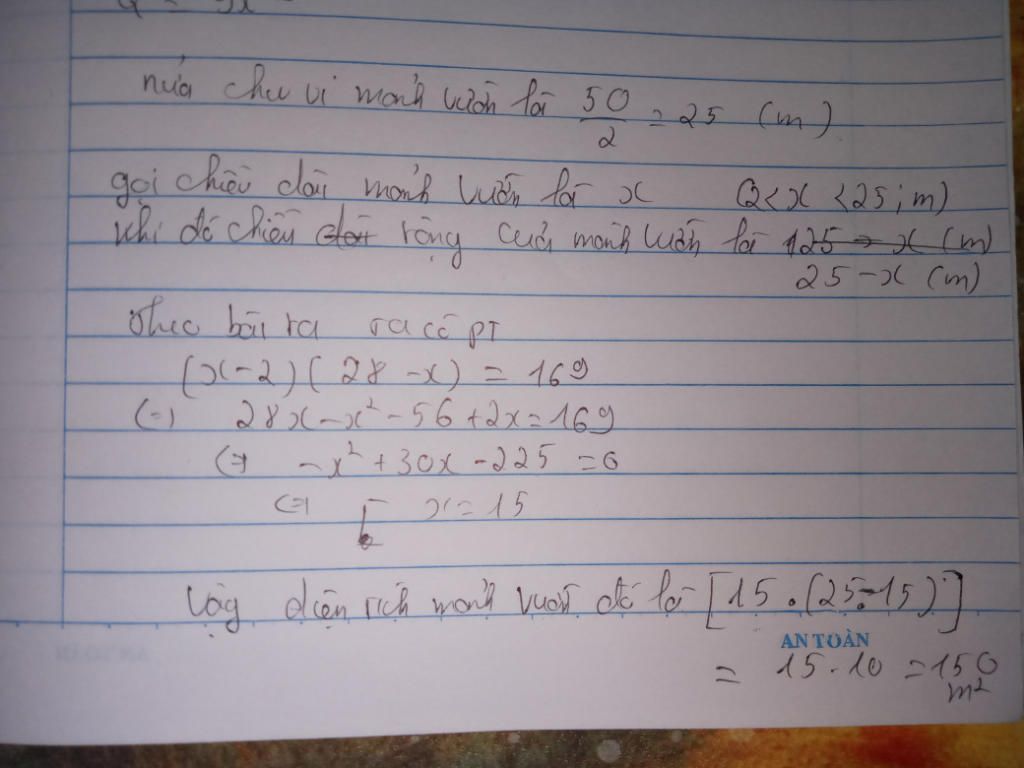 nửa chu vi mảnh vườn là 50/2 = 25 (m)
gọi chiều dài mảnh vườn là x (2<x<25; m)
khi đó chiều dài rộng của mảnh vườn là 125 - x (m)
25 - x (m)
theo bài ra ta có PT
(x-2)(28-x) = 169
(=) 28x - x² - 56 + 2x = 169
(=) -x² + 30x - 225 = 0
(=) [ x = 15
Vậy diện tích mảnh vườn đó là [15.(25-15)]
AN TOÀN
= 15.10 = 150
m²